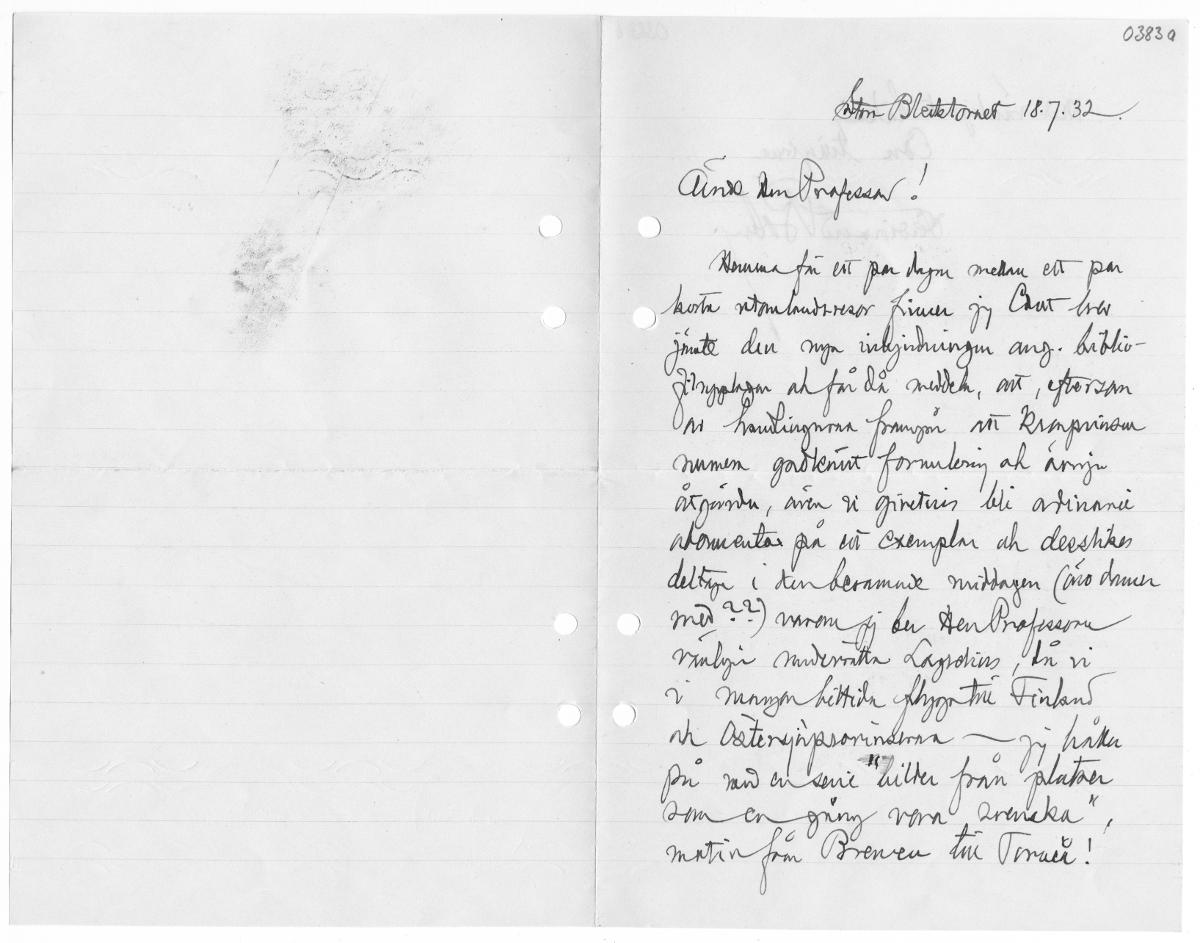 0383a
Stora Blecktornet 18.7.32.
Ärade Herr Professor!
Hemma för ett par dagar mellan ett par
korta utomlandsresor finner jag Edert brev
jämte den nya inbjudningen ang. biblio-
filupplagan och får då meddela, att, eftersom
av handlingarna framgår att Kronprinsen
numera godkänt formulering och övriga
åtgärder, även vi givetvis bli ordinarie
abonnenter på ett exemplar och desslikes
deltaga i den beramade middagen (äro damer
med??) varom jag ber Herr Professorn
vänligen underrätta Lagrelius, då vi
i morgon bittida flyga till Finland
och Östersjöprovinserna — jag håller
på med en serie "bilder från platser
som en gång varit svenska",
motiv från Bremen till Torneå!